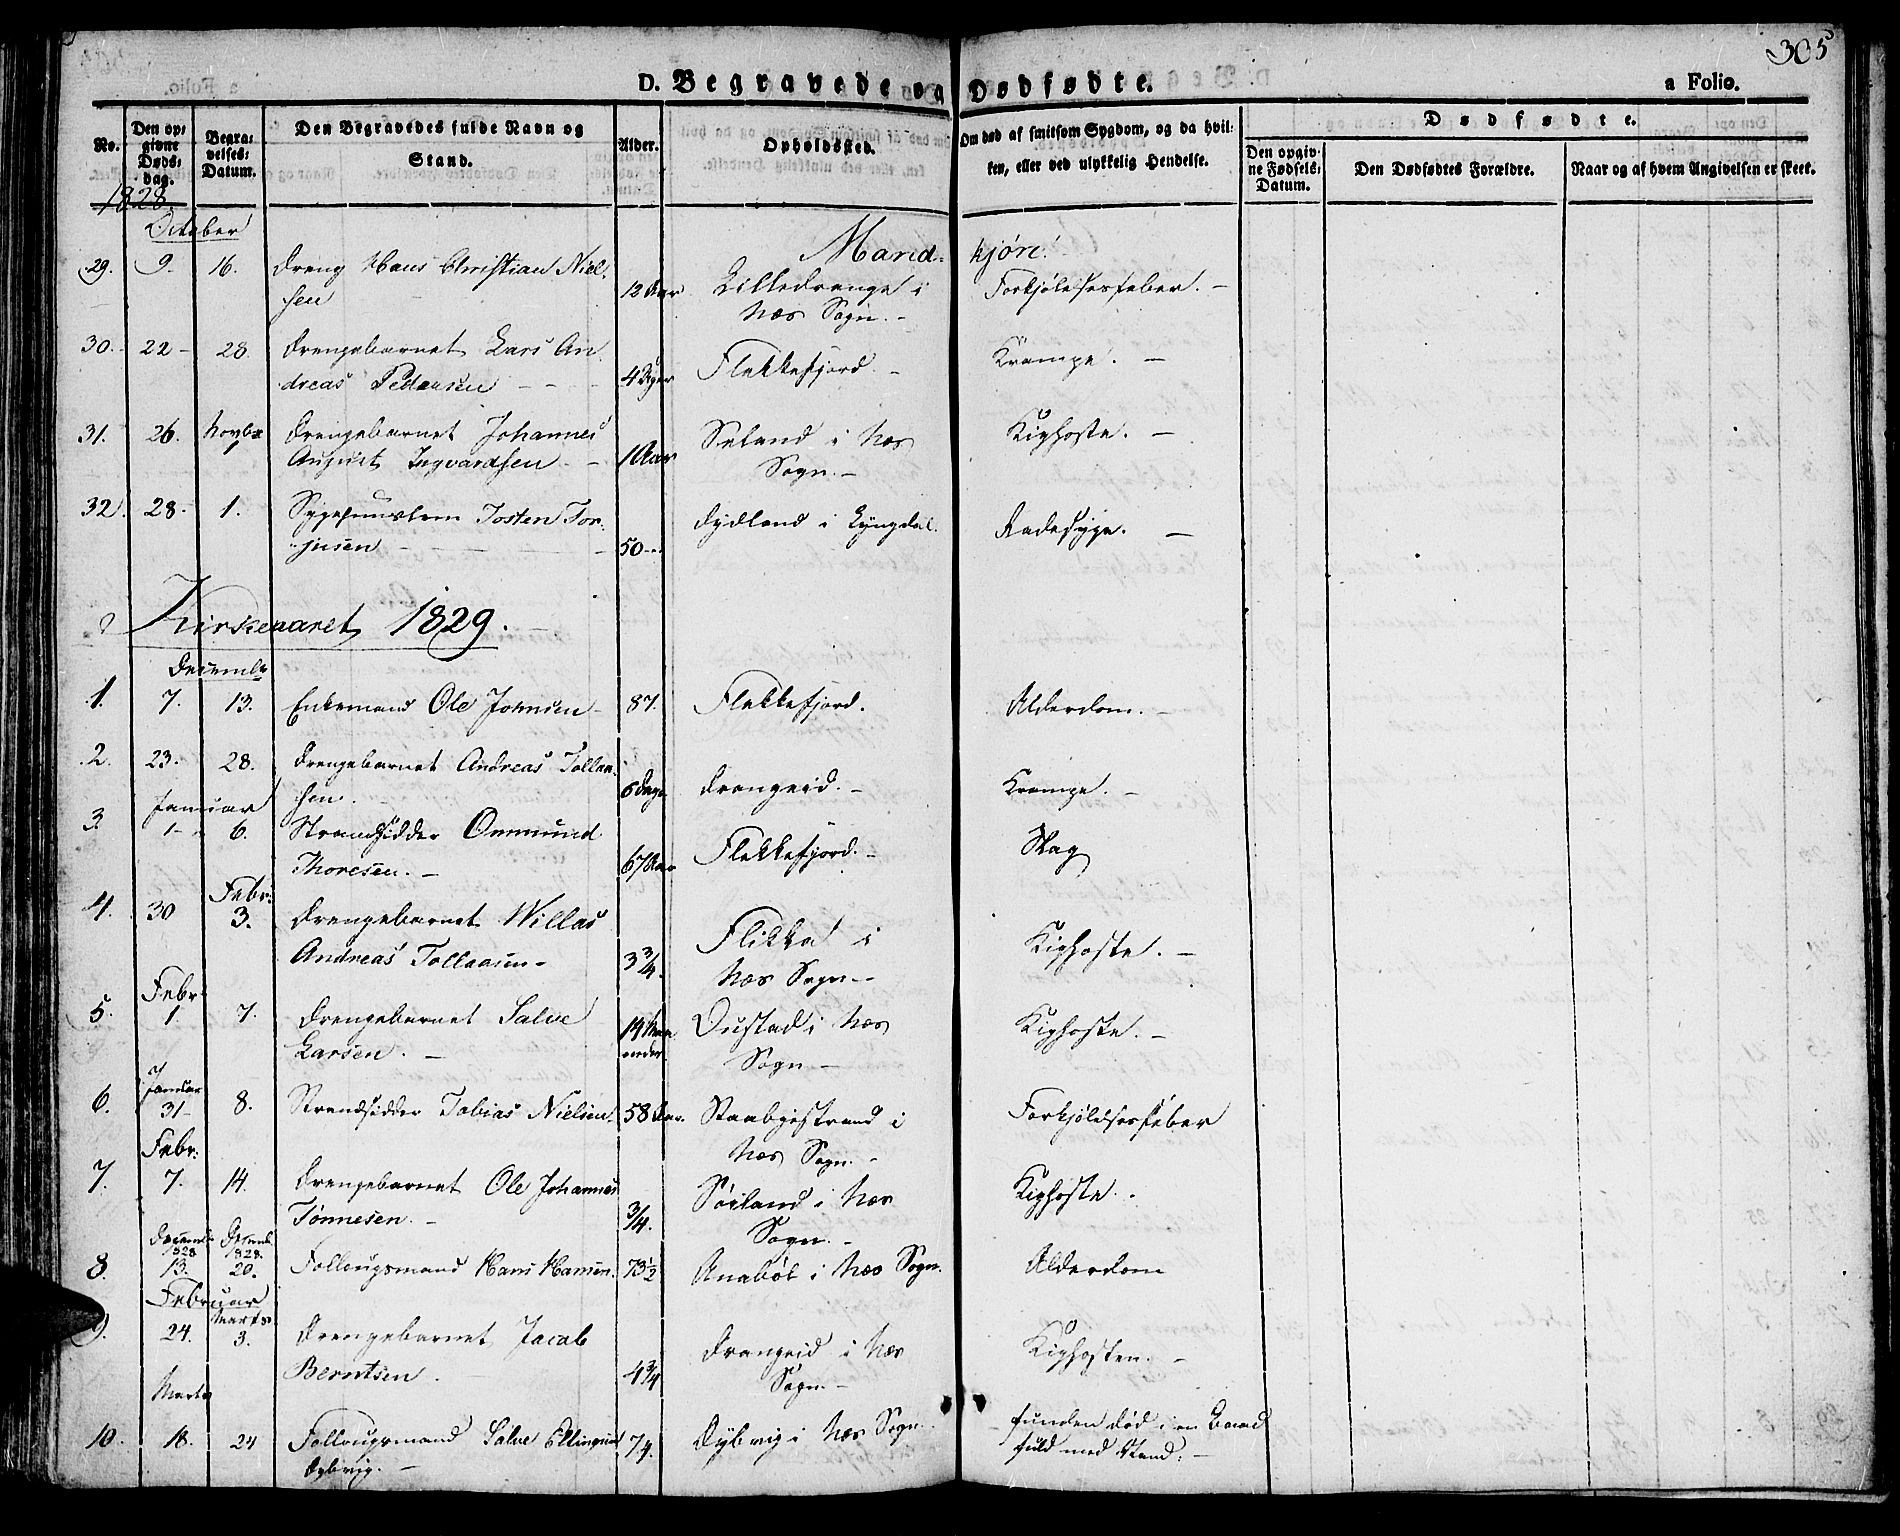 305
D. Begravede og Dødfødte.
a Folio.
No.
Den op:
givne
Døds:
dag.
Begra:
velses:
Datum.
Den Begravedes fulde Navn og
Stand.
Alder.
Opholdssted.
Om død af smitsom Sygdom, og da hvil:
ken, eller ved ulykkelig Hendelse.
Dødfødte.
Den opgiv:
ne Fødsels:
Datum.
Den Dødfødtes Forældre.
Naar og af hvem Angivelsen er skeet.
1828.
October
Mand- kjøn:
29. 9. 16. Dreng Hans Christian Niel-
sen 12 Aar Lilledrange i
Næs Sogn. - Forkjølelsesfeber. -
30. 22 - 28. Drengebarnet Lars An
dreas Pedersen - - 4 Uger Flekkefjord. - Krampe. -
31. 26. Novbr
1 Drengebarnet Johannes
August Ingvardsen - 1 Aar Seland i Næs
Sogn. - Kighoste. -
32. 28. 1. Josten Tor-
jusen - 50 Dydland i Lyngdal. Radesyge. -
Kirkeaaret 1829.
Decembr
1. 7. 13. Enkemand Ole Johnsen - 87. Flekkefjord. Alderdom. -
2. 23. 28. Drengebarnet Andreas Tollak-
sen. 6 Dage Drangeid. - Krampe. -
Januar
3. 1 - 6. Strandsidder Ommund
Thoresen. - 67 Aar Flekkefjord. - Slag
4. 30 Febr:
3. Drengebarnet Willas
Andreas Tollaksen - 3 3/4. Flikka i
Næs Sogn - Kighoste. -
Febr:
5. 1 7. Drengebarnet Salve
Larsen. - 14 Maa
neder. i Næs
Sogn - Kighoste. -
Januar
6. 31 - 8. Strandsidder Tobias Nielsen 58 Aar. i
Næs Sogn. - Forkjølelsesfeber
Febr:
7. 7. 14. Drengebarnet Ole Johannes
Tønnesen. - 3/4. Søiland i Næs
Sogn. - Kighoste. -
Decemb:
1828
Decemb:
1828.
8. 13. 20. Hans Hansen. 73 1/2 Anabøe i Næs Sogn. Alderdom
Februar
9. 24. Marts
3. Drengebarnet Jacob
Berntsen. 4 3/4 Drangeid i Næs
Sogn. - Kighosten. -
Marts
10. 18. 24 Salve Ellingsen
Dybvig. - 74. Dybvig i Næs Sogn. funden død i en Baad
fuld med Vand. -